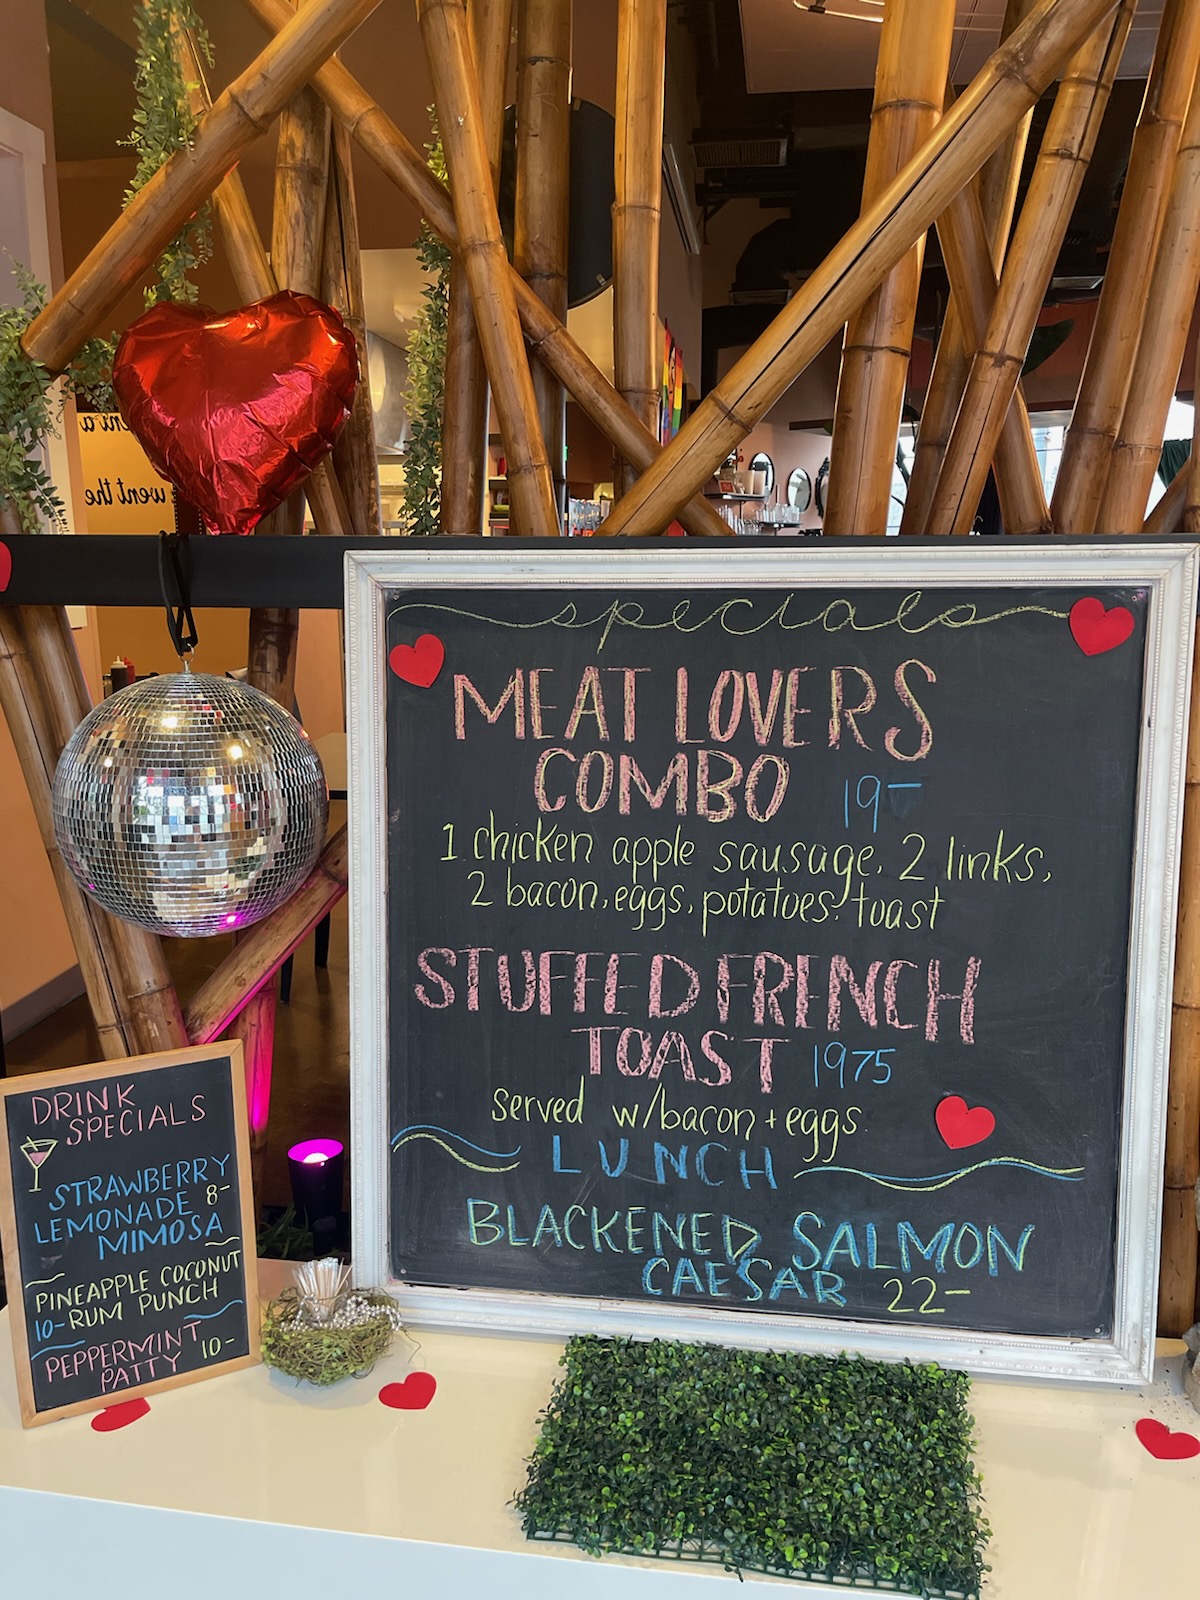 specials
MEAT LOVERS
COMBO 19-
1 chicken apple sausage, 2 links,
2 bacon, eggs, potatoes, toast
STUFFED FRENCH
TOAST 1975
served w/bacon + eggs
LUNCH
BLACKENED SALMON
CAESAR 22-
DRINK
SPECIALS
STRAWBERRY
LEMONADE 8-
MIMOSA
PINEAPPLE COCONUT
10- RUM PUNCH
PEPPERMINT
PATTY 10-
went the